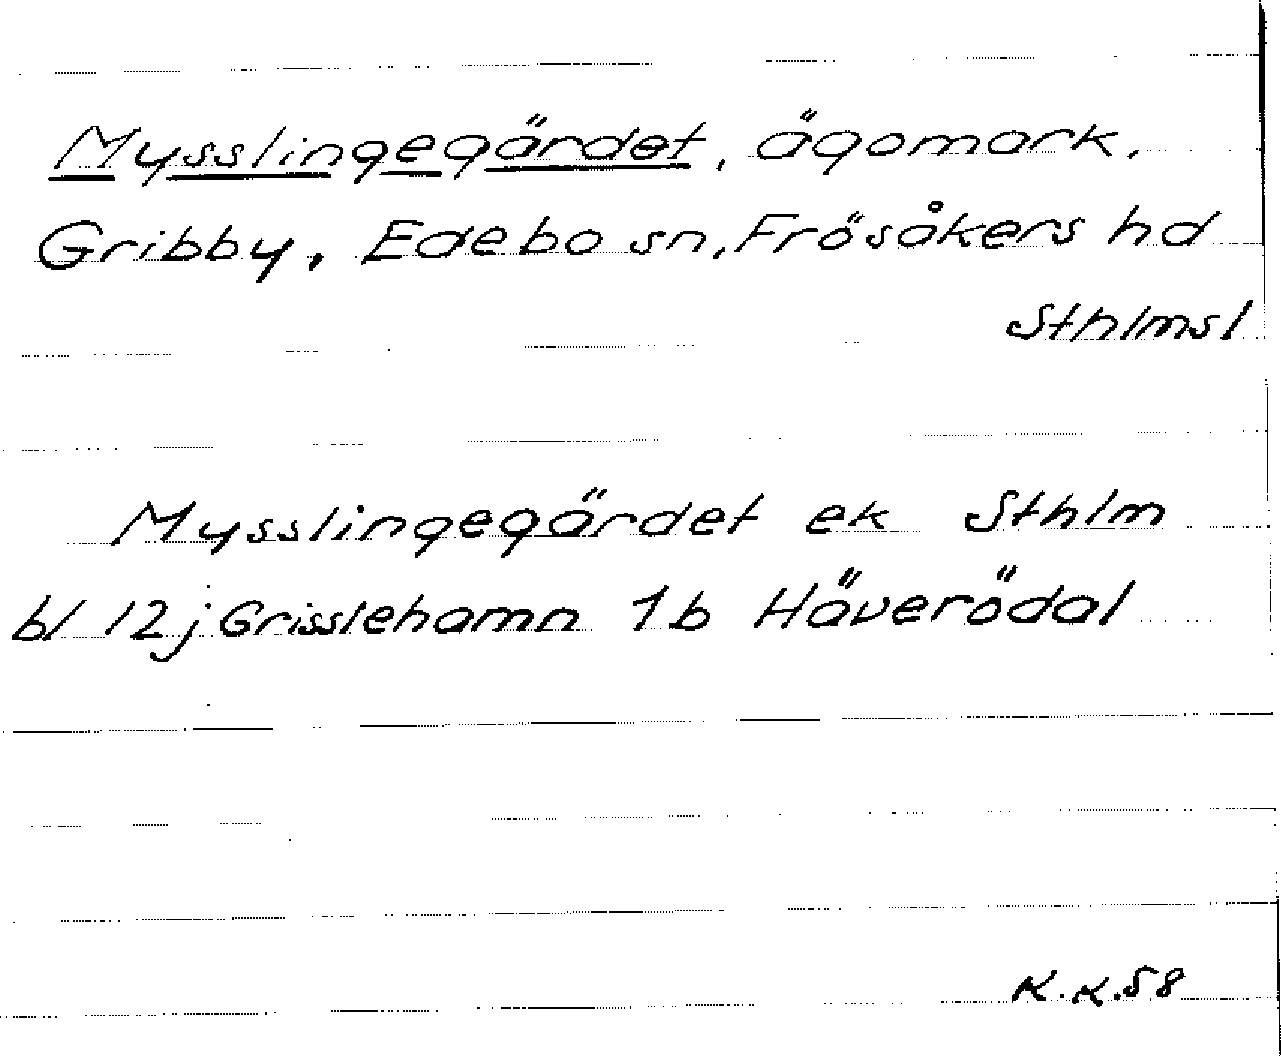 Mysslingegärdet, ägomark,
Gribby, Edebo sn, Frösåkers hd
Sthlmsl
Mysslingegärdet ek Sthlm
bl 12j Grisslehamn 1b Häverödal
K.K.58